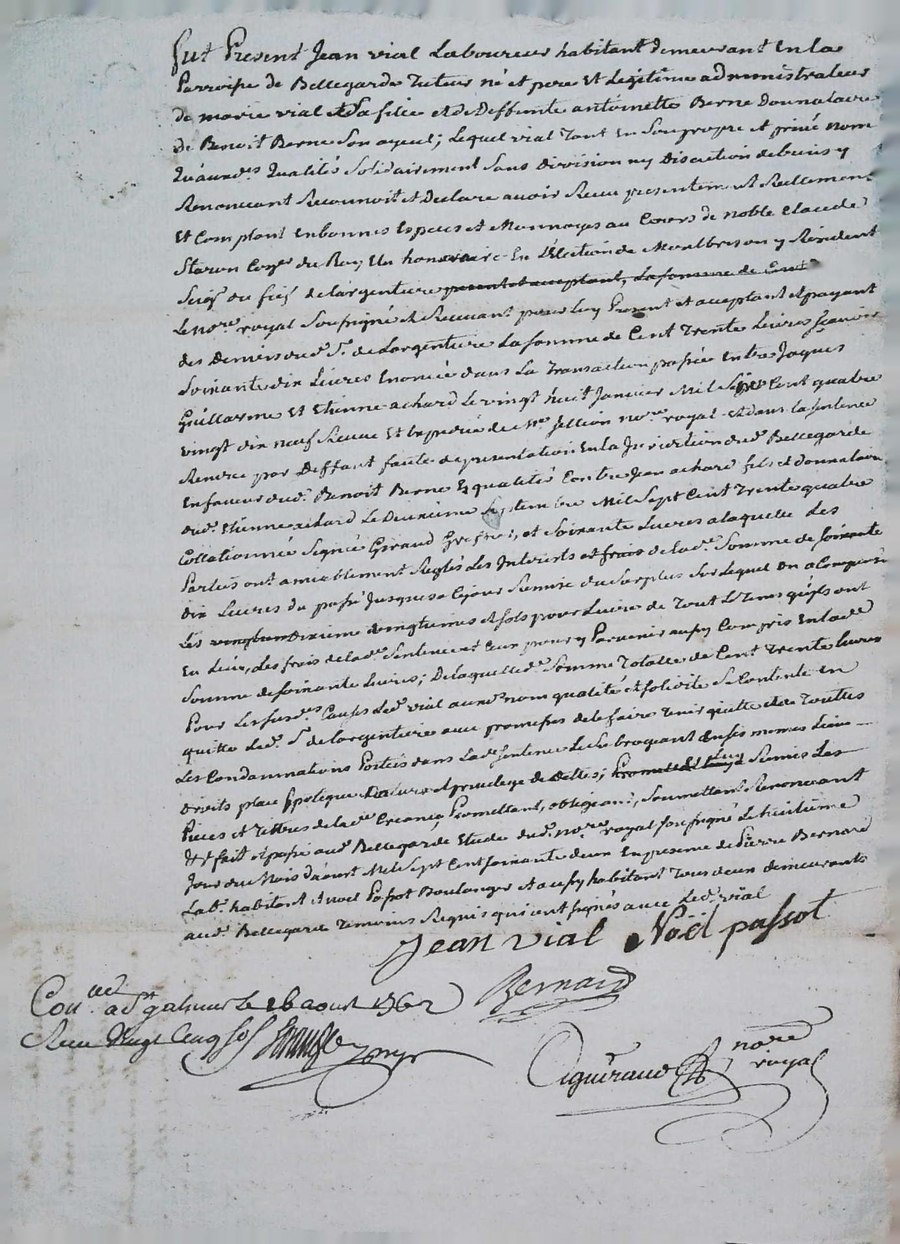 fut Present Jean vial Laboureur habitant demeurant En la
Parroisse de Bellegarde Tuteur né et pere Et Legitime administrateur
de marie vial sa fille et de Deffunte antoinette Berne Donnataire
de Benoit Berne Son ayeul; Lequel vial Tant En Son propre et privé nom
Qu'auxd.s Qualités Solidairement Sans Division ny Discution de biens y
Renonceant Reconnoit et Declare avoir Receu presentement Reellement
Et Comptant En bonnes Especes et Monnoyes au Cours de noble Claude
Staron Con.er du Roy En En L'Election de Montbrison y Resident
Seig.r du fief de Largentiere present et acceptant, La somme de Cent
Le no.re royal Soussigné et Recevant pour Luy Present et acceptant et payant
des Deniers dud. S.r de Largentiere La somme de Cent Trente Livres
Soixante dix Livres Enoncée dans La Transaction passée Entre Jaques
Guillaume Et Etienne achard Le vingt huit Janvier Mil Sept Cent quatre
vingt dix neuf Receue Et de M.e Jellion no.re royal et dans la sentence
Rendue par Deffaut faute de presentation En la Jurisdition dud. Bellegarde
En faveur dud. Benoit Berne Esqualités Contre Jean achard fils et donnataire
dud. Etienne achard Le Deuxieme Septembre Mil Sept Cent Trente quatre
Collationnée Signée Giraud Greffier, et Soixante Livres a laquelle Les
Parties ont amiablement Reglés Les Interests et frais de lad.e Somme de Soixante
dix Livres du passé Jusques a Cejour Remise du Surplus Sur Lequel on a Compensé
Les vingtiemes et sols pour Livre de Tout Le Tems qu'ils ont
En Lieu, Les frais de lad.e Sentence et Ceux pour y Parvenir aussy Compris En lad.e
Somme de soixante Livres; De laquelle d.e Somme Totalle de Cent Trente Livres
Pour Les susd.es Causes Led. vial auxd. nom qualité et solidité Se Contente en
quitte Led. S.r de Largentiere aux promesses de le faire Tenir quitte de Toutes
Les Condamnations Portées dans La d.e Sentence Le Subrogeant En ses mêmes Lieu
Droits place hypoteque et privilege de dettes; Promet Luy Remis Les
Pieces et Tittres de lad.e Creance, Promettant, obligeant, Soumettant Renonceant
fait et passé aud. Bellegarde Etude dud. no.re royal soussigné Le huitieme
Jour du Mois d'aout Mil Sept Cent soixante deux En presence de Pierre Bernard
Lab.r habitant Et noel Passot Boulanger Et aussy habitant Tous deux demeurants
aud. Bellegarde Temoins Requis qui ont signés avec Led. vial
Jean vial Noël passot
Bernard
Con.lé a S.t galmier le 16 aout 1762
Receu Vingt Cinq sols
Ciguiraud no.re royal